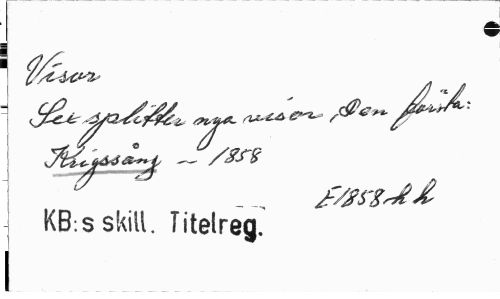 Visor
Sex splitter nya visor, Den första:
Krigssång — 1858
E1858 h h
KB:s skill. Titelreg.